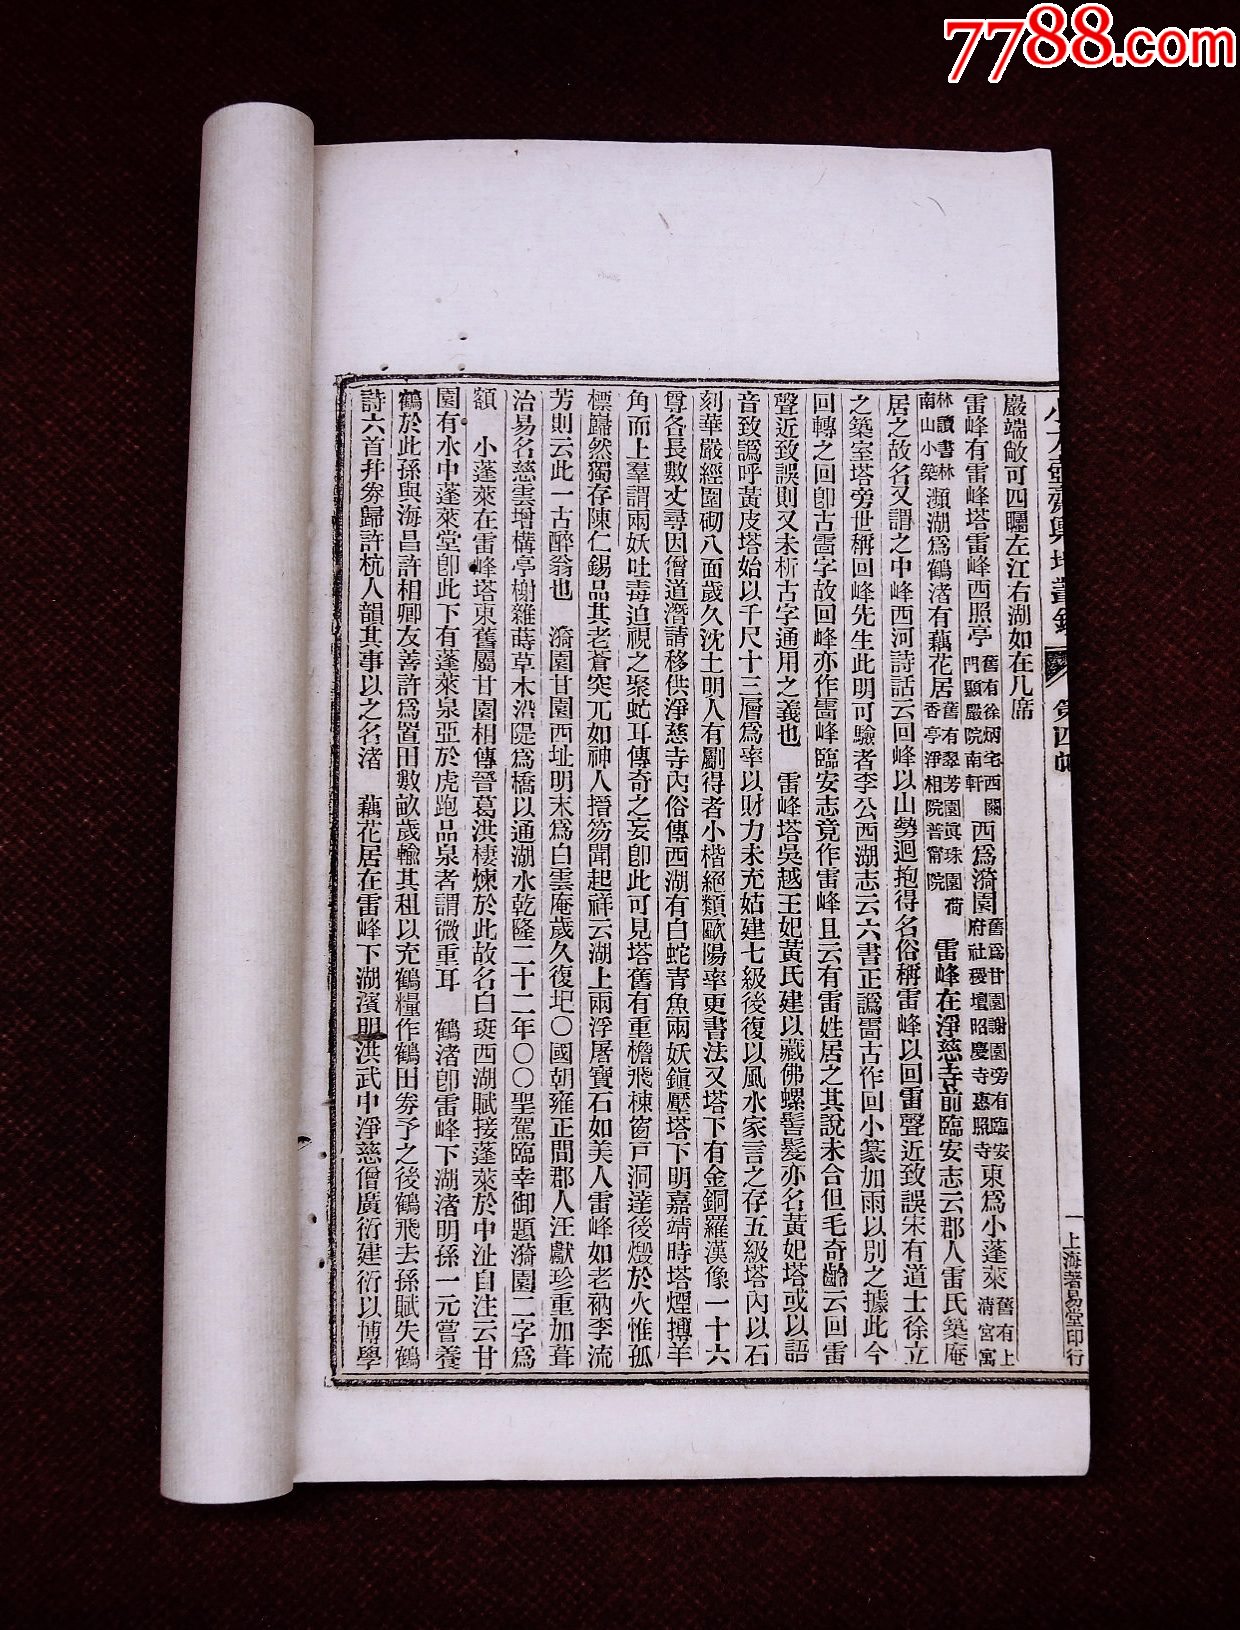 7788.com
小方壺齋輿地叢鈔
第四帙
一
上海著易堂印行
巖端敞可四矚左江右湖如在几席
雷峰有雷峰塔雷峰西照亭舊有徐炳宅西園門顯嚴院南軒西爲漪園舊爲甘園謝園旁有臨安府社稷壇昭慶寺惠照寺東爲小蓬萊舊有上清宮寓
林讀書林南山小築瀕湖爲鶴渚有藕花居舊有翠芳園眞珠園荷香亭淨相院普甯院 雷峰在淨慈寺前臨安志云郡人雷氏築庵
居之故名又謂之中峰西河詩話云回峰以山勢迴抱得名俗稱雷峰以回雷聲近致誤宋有道士徐立
之築室塔旁世稱回峰先生此明可驗者李公西湖志云六書正譌雷古作回小篆加雨以別之據此今
回轉之回卽古雷字故回峰亦作雷峰臨安志竟作雷峰且云有雷姓居之其說未合但毛奇齡云回雷
聲近致誤則又未析古字通用之義也 雷峰塔吳越王妃黃氏建以藏佛螺髻髮亦名黃妃塔或以語
音致譌呼黃皮塔始以千尺十三層爲率以財力未充姑建七級後復以風水家言之存五級塔內以石
刻華嚴經圍砌八面歲久沈土明人有劚得者小楷絕類歐陽率更書法又塔下有金銅羅漢像一十六
尊各長數丈尋因僧道潛請移供淨慈寺內俗傳西湖有白蛇青魚兩妖鎭壓塔下明嘉靖時塔煙摶羊
角而上羣謂兩妖吐毒迫視之聚虻耳傳奇之妄卽此可見塔舊有重檐飛棟窗戶洞達後燬於火惟孤
標巋然獨存陳仁錫品其老蒼突兀如神人搢笏聞起祥云湖上兩浮屠寶石如美人雷峰如老衲李流
芳則云此一古醉翁也 漪園甘園西址明末爲白雲庵歲久復圮〇國朝雍正間郡人汪獻珍重加葺
治易名慈雲增構亭榭雜蒔草木沿隄爲橋以通湖水乾隆二十二年〇〇聖駕臨幸御題漪園二字爲
額 小蓬萊在雷峰塔東舊屬甘園相傳晉葛洪棲煉於此故名白珽西湖賦接蓬萊於中沚自注云甘
園有水中蓬萊堂卽此下有蓬萊泉亞於虎跑品泉者謂微重耳 鶴渚卽雷峰下湖渚明孫一元嘗養
鶴於此孫與海昌許相卿友善許爲置田數畝歲輸其租以充鶴糧作鶴田券予之後鶴飛去孫賦失鶴
詩六首幷券歸許杭人韻其事以之名渚 藕花居在雷峰下湖濱明洪武中淨慈僧廣衍建衍以博學